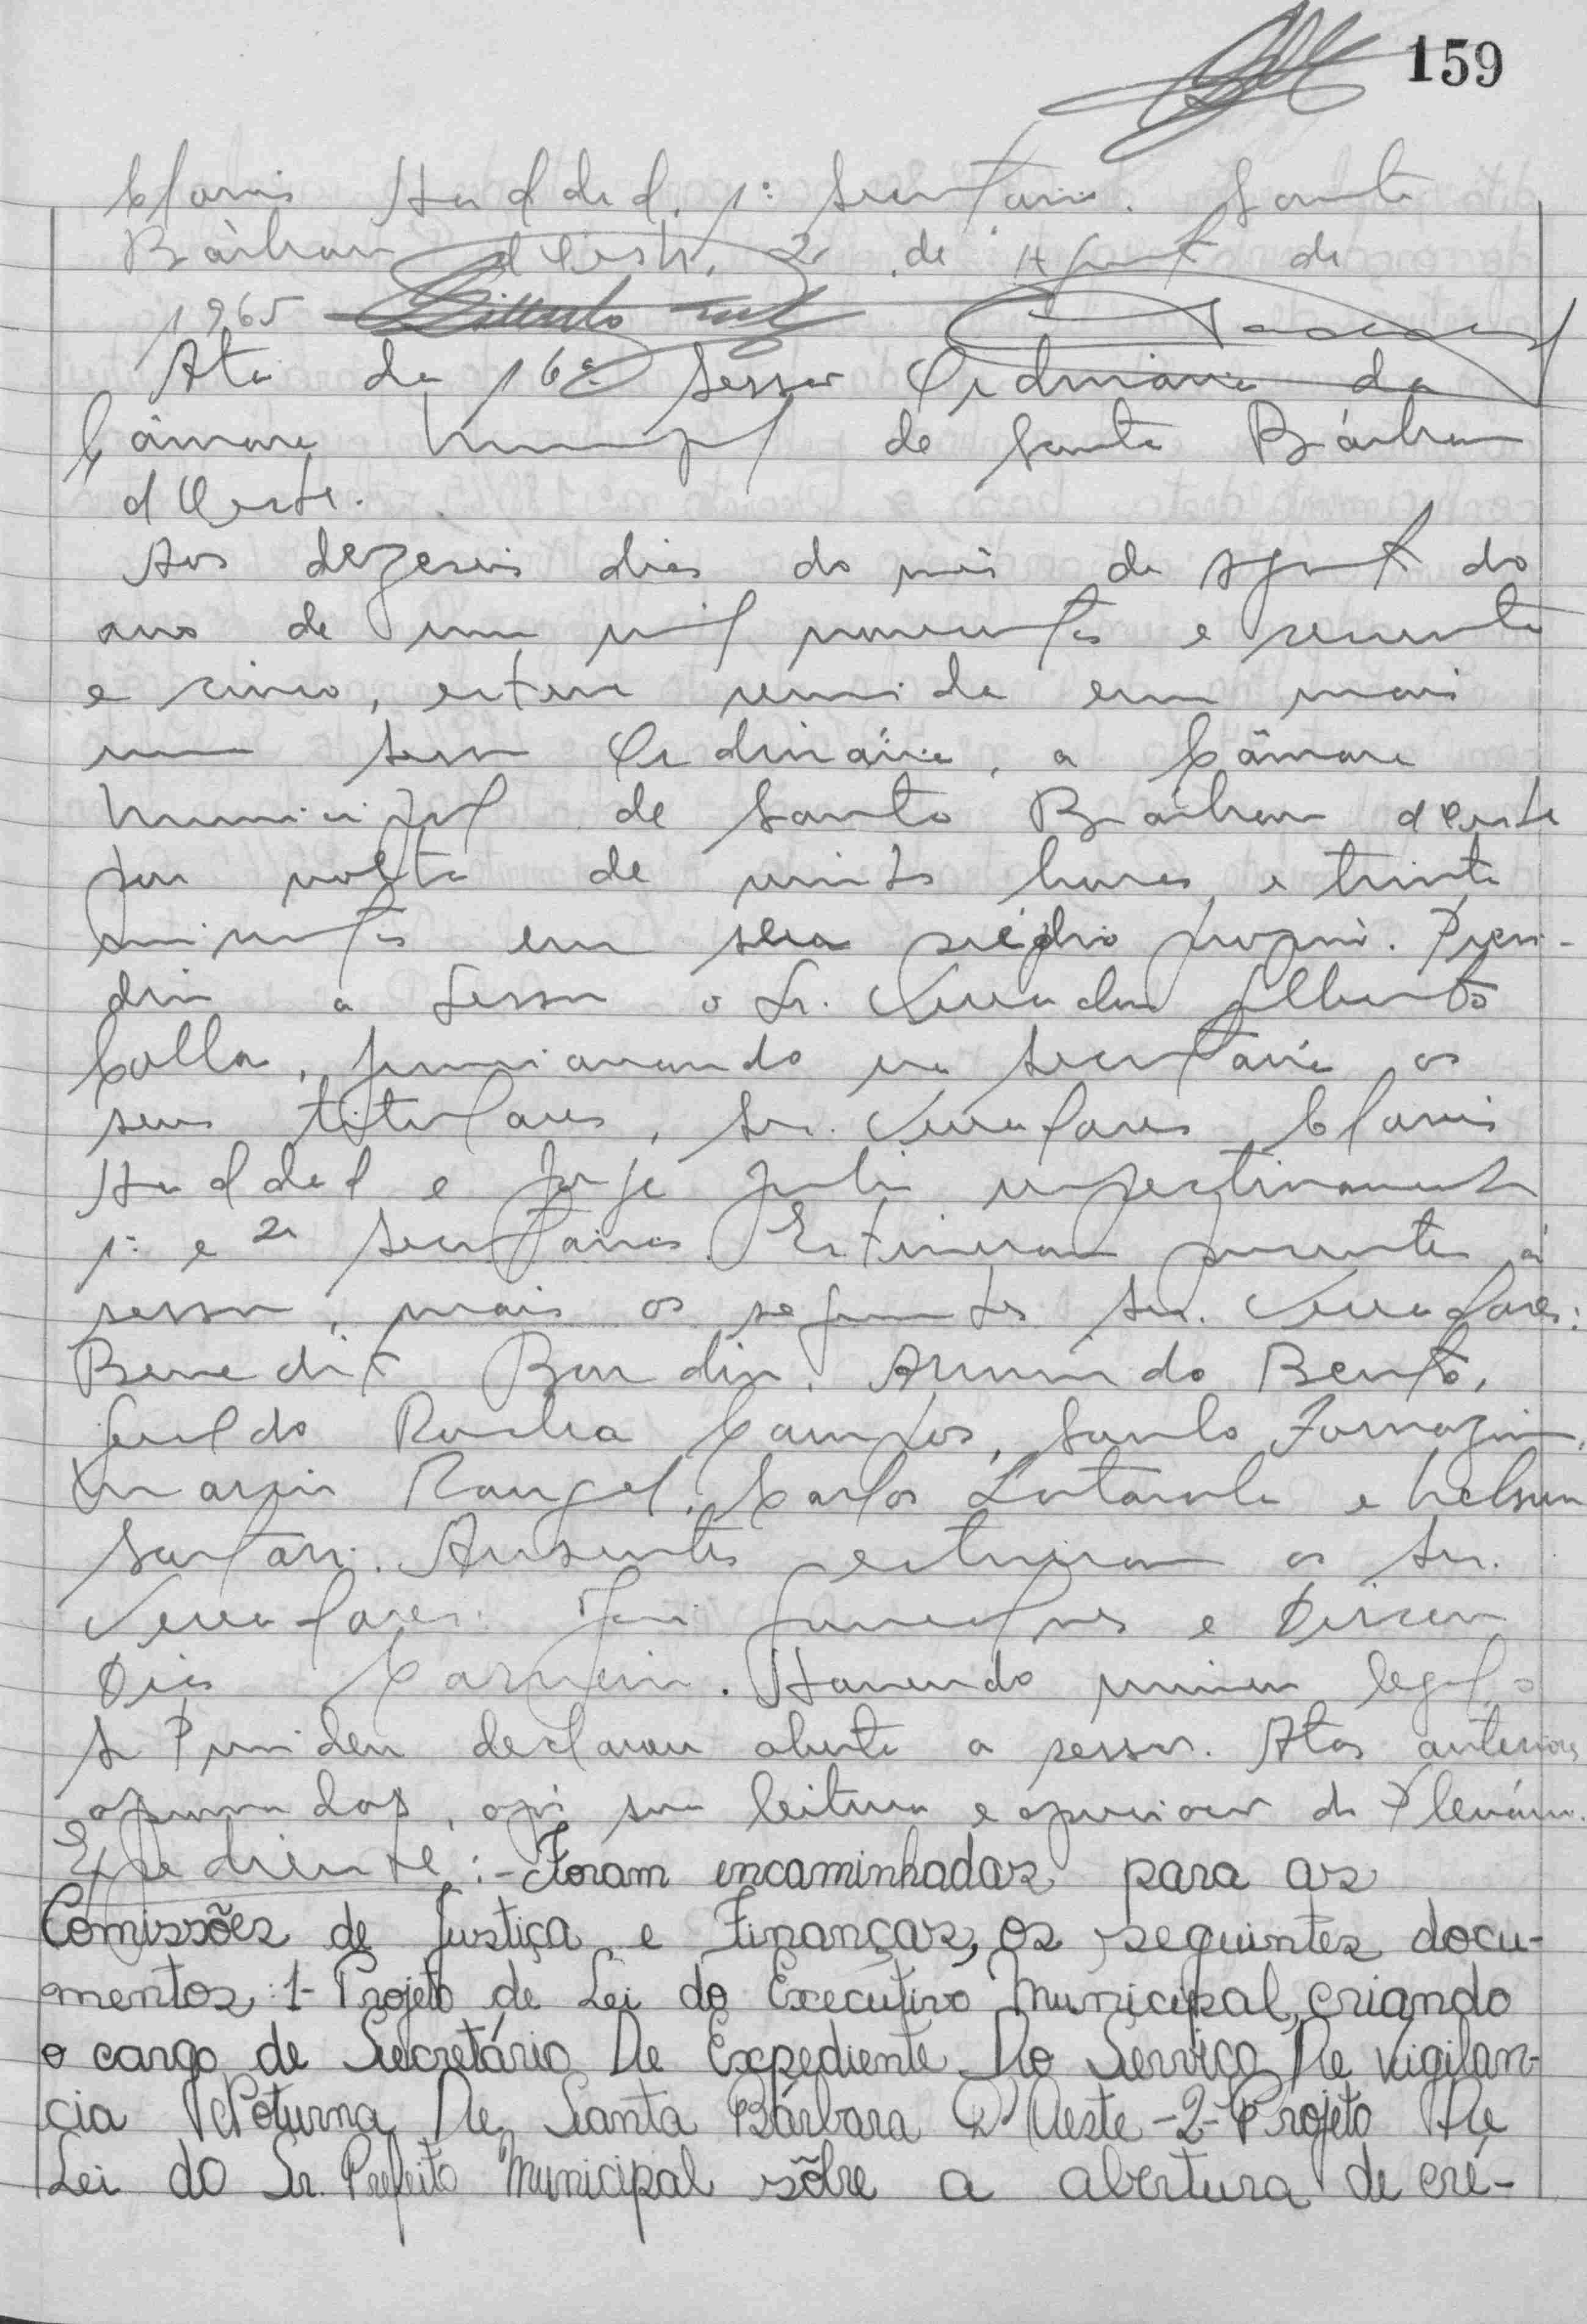 159
Clovis Haddad. 1º Secretario. Santa
Bárbara d'Oeste, 2 de Agosto de
1965
Ata da 16ª Sessão Ordinaria da
Câmara Municipal de Santa Bárbara
d'Oeste.
Aos dezeseis dias do mês de Agosto do
ano de um mil novecentos e sessenta
e cinco, esteve reunida em mais
uma sessão Ordinária, a Câmara
Municipal de Santa Bárbara d'Oeste
por volta de vinte horas e trinta
minutos em seu prédio proprio. Presi-
diu a Sessão o Sr. Vereador Gilberto
Colla, funcionando na secretaria os
seus titulares, Srs. Vereadores Clovis
Haddad e Jorge respectivamente
1º e 2º Secretarios. Estiveram presentes à
sessão, mais os seguintes Srs. Vereadores:
Benedito Armindo Bento,
Geraldo Rocha Campos, Santo Fornazin,
Mario Rangel, Carlos e Nelson
Sartori. Ausentes estiveram os Srs.
Vereadores: e Dirceu
Dias Carneiro. Havendo número legal o
Sr Presidente declarou aberta a sessão. Atas anteriores
aprovadas, após sua leitura e apreciação do Plenário.
Expediente:- Foram encaminhadas para as
Comissões de Justiça e Finanças, os seguintes docu-
mentos: 1- Projeto de Lei do Executivo Municipal, criando
o cargo de Secretário De Expediente Do Serviço De Vigilan-
cia Noturna De Santa Bárbara D'Oeste -2- Projeto De
Lei do Sr. Prefeito Municipal sôbre a abertura de cré-